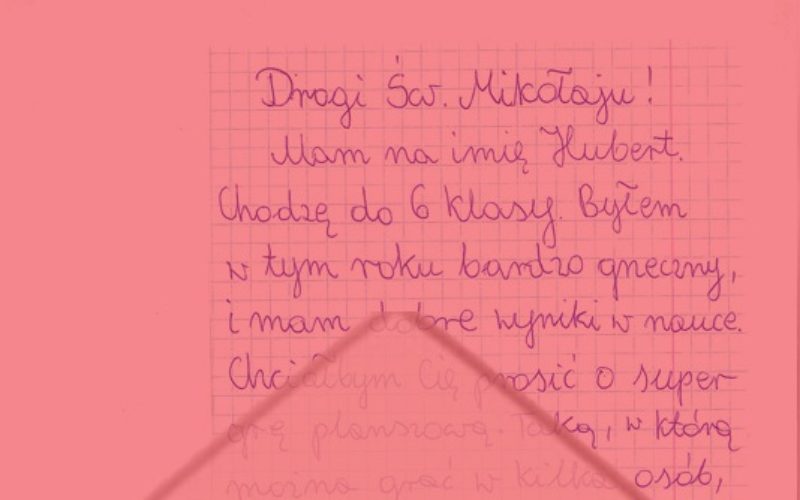 Drogi Św. Mikołaju!
Mam na imię Hubert.
Chodzę do 6 klasy. Byłem
w tym roku bardzo grzeczny,
i mam dobre wyniki w nauce.
Chciałbym Cię prosić o super
grę planszową. Taką, w którą
można grać w kilka osób,